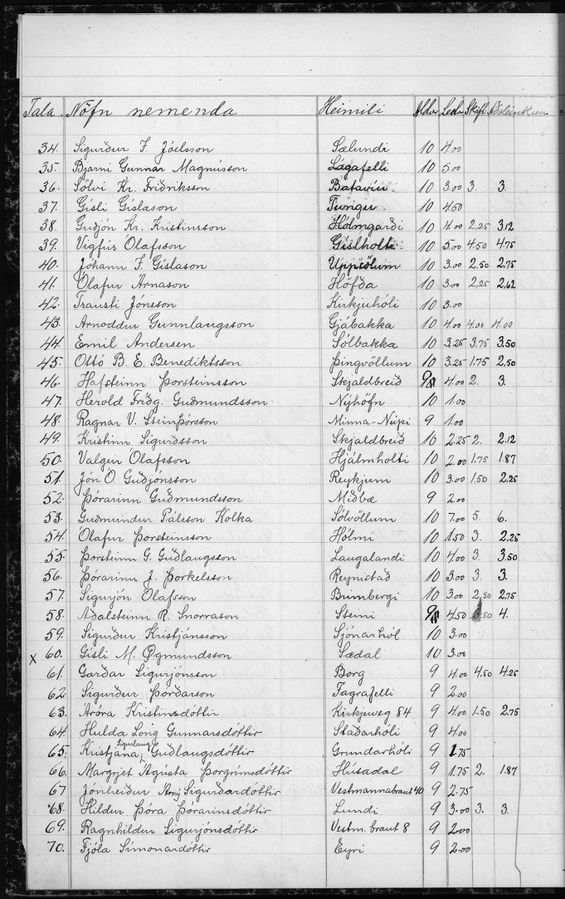 Tala Nöfn nemenda Heimili Aldur Lestur Skrift Aðaleinkunn
34. Sigurður F. Jóelsson Sælundi 10 4.00
35. Bjarni Gunnar Magnússon Lágafelli 10 5.00
36. Sölvi Kr. Friðriksson Batavíu 10 3.00 3. 3.
37. Gísli Gíslason Tungu 10 4.50
38. Guðjón Kr. Kristinsson Hólmgarði 10 4.00 2.25 3.12
39. Vigfús Ólafsson Gíslholti 10 5.00 4.50 4.75
40. Jóhann F. Gíslason Uppsölum 10 3.00 2.50 2.75
41. Ólafur Árnason Höfða 10 3.00 2.25 2.62
42. Trausti Jónsson Kirkjuhóli 10 3.00
43. Arnoddur Gunnlaugsson Gjábakka 10 4.00 4.00 4.00
44. Emil Andersen Sólbakka 10 3.25 3.75 3.50
45. Ottó B. E. Benediktsson Þingvöllum 10 3.25 1.75 2.50
46. Hafsteinn Þorsteinsson Skjaldbreið 9 4.00 2. 3.
47. Herold Friðg. Guðmundsson Nýhöfn 10 1.00
48. Ragnar V. Steinþórsson Minna-Núpi 9 1.00
49. Kristinn Sigurðsson Skjaldbreið 10 2.25 2. 2.12
50. Valgeir Ólafsson Hjálmholti 10 2.00 1.75 1.87
51. Jón O. Guðjónsson Reykjum 10 3.00 1.50 2.25
52. Þórarinn Guðmundsson Miðbæ 9 2.00
53. Guðmundur Pálsson Kolka Sólvöllum 10 7.00 5. 6.
54. Ólafur Þorsteinsson Hólmi 10 1.50 3. 2.25
55. Þorsteinn G. Guðlaugsson Laugalandi 10 4.00 3. 3.50
56. Þórarinn J. Þorkelsson Reynistað 10 3.00 3. 3.
57. Sigurjón Ólafsson Brimbergi 10 3.00 2.50 2.75
58. Aðalsteinn R. Snorrason Steini 9 4.50 3.50 4.
59. Sigurður Kristjánsson Sjónarhól 10 3.00
x 60. Gísli M. Ögmundsson Sædal 10 3.00
61. Garðar Sigurjónsson Borg 9 4.00 4.50 4.25
62. Sigurður Þórðarson Fagrafelli 9 2.00
63. Aróra Kristinsdóttir Kirkjuveg 84 9 4.00 1.50 2.75
64. Hulda Long Gunnarsdóttir Staðarhóli 9 4.00
65. Kristjana Sigurlaug Guðlaugsdóttir Grundarhóli 9 1.75
66. Margrjet Ágústa Þorgrímsdóttir Húsadal 9 1.75 2. 1.87
67. Jónheiður Sigurðardóttir Vestmannabraut 40 9 2.75
68. Hildur Þóra Þórarinsdóttir Lundi 9 3.00 3. 3.
69. Ragnhildur Sigurjónsdóttir Vestm. braut 8 9 2.00
70. Fjóla Símonardóttir Eyri 9 2.00